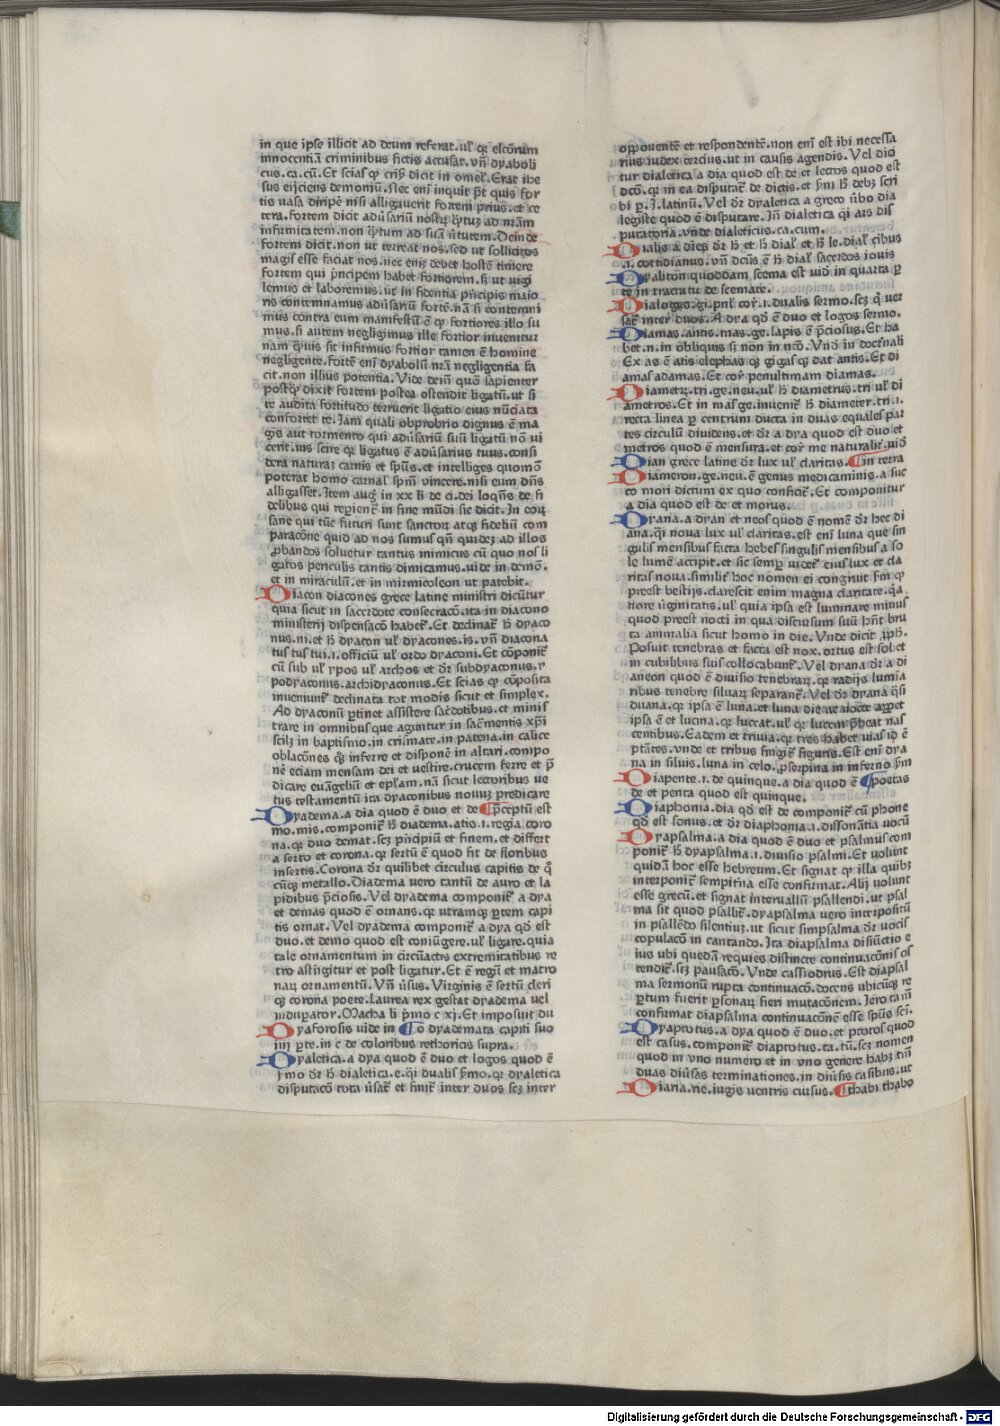 in que ipse illicit ad deum referat. ul' qr electorum
innocentiā criminibus fictis accusat. vn̄ dyaboli
cus. ca. cū. Et scias qͥ dicit in omel'. Erat ihe
sus eijciens demoniū. Nec enī inquit pt̄ quis for
tis uasa diripe nisi alligauerit fortem prius. et ce
tera. fortem dicit adūsariū nostrꝝ ad nr̄am
infirmitatem. non qͣtum ad suā ūtutem. Deinde
fortem dicit. non ut terreat nos. sed ut sollicitos
magis esse faciat nos. nec enī debet hostē timere
fortem qui pͥncipem habet fortiorem. sꝫ ut uigi
lemus et laboremus. ut in fidentia pͥncipis maio
ris contemnamus adūsariū fortē. nā si contemni
mus contra eum manifestū ē qꝫ fortiores illo su
mus. si autem negligimus ille fortior inuenitur
nam qͣuis sit infirmus fortior tamen ē homine
negligente. fortē enī dyabolū nr̄a negligentia fa
cit. non illius potentia. Vide dein̄ quō sapienter
postqͣ dixit fortem postea ostendit ligatū. ut si
te audita fortitudo terruerit ligatio eius nūciata
confortet te. Iam quali obprobrio dignus ē ma
gis aut tormento qui adūsariū suū ligatū nō ui
cerit. uis scire qr ligatus ē adūsarius tuus. consi
dera naturaꝫ carnis et spūs. et intelliges quomō
poterat homo carnal' spm̄ vincere. nisi eum dn̄s
alligasset. Item aug in xx li de ci. dei loqn̄s de fi
delibus qui repient̄ in fine mūdi sic dicit. In cor
sane qui tūc futuri sunt sanctoꝝ atqꝫ fideliū com
paracōne quid ad nos sumus qn̄ quideꝫ ad illos
ꝓbandos soluetur tantus inimicus cū quo nos li
gatos periculis tantis dimicamus. vide in demō.
et in miraculū. et in mirmicoleon ut patebit.
Diacon diacones grece latine ministri dicūtur
quia sicut in sacerdote consecracō. ita in diacono
ministerij dispensacō habet̄. Et declinat̄ h̄ dyaco
nus. ni. et h̄ dyacon ul' dyacones. is. vn̄ diacona
tus tus tui. i. officiū ul' ordo dyaconi. Et cōponit̄
cū sub ul' ypos ul' archos et dr̄ subdyaconus. y
podyaconus. archidyaconus. Et scias qꝫ cōposita
inueniunt̄ declinata tot modis sicut et simplex.
Ad dyaconū ꝑtinet assistere sacdotibus. et minis
trare in omnibus que aguntur in sac̄mentis xp̄i
scilꝫ in baptismo. in crismate. in patena. in calice
oblacōnes qꝫ inferre et disponē in altari. compo
nē eciam mensam dei et vestire. crucem ferre et p̄
dicare euāgeliū et epl̄am. nā sicut lectoribus ve
tus testamentū ita dyaconibus nouuꝫ predicare
Dyadema. a dia quod ē duo et de ¶p̄ceptū est
mo. mis. componit̄ h̄ diadema. atis. i. regia coro
na. qr duo demat. scꝫ pͥncipiū et finem. et differt
a serto et corona. qr sertū ē quod fit de floribus
insertis. Corona dr̄ quilibet circulus capitis de qͦ
cūqꝫ metallo. Diadema vero tantū de auro et la
pidibus p̄ciosis. Vel dyadema componit̄ a dya
et demas quod ē ornans. qr utramqꝫ ꝑtem capi
tis ornat. Vel dyadema componit̄ a dya qd est
duo. et demo quod est coniūgere. ul' ligare. quia
tale ornamentum in circūactis extremitatibus re
tro astringitur et post ligatur. Et ē regū et matro
naꝝ ornamentū. Vn̄ ūsus. Virginis ē sertū cleri
qꝫ corona poete. Laurea rex gestat dyadema uel
induꝑator. Macha li pͥmo c xj. Et imposuit du
Dyaforosis vide in ¶o dyademata capiti suo
iiij ꝑte. in c de coloribus rethoricis supra.
Dyaletica. a dya quod ē duo et logos quod ē
sͬmo dr̄ h̄ dialetica. e. qͥ dualis sͬmo. qr dyaletica
disputacō tota ūsat̄ et finit̄ inter duos scꝫ inter
opponentē et respondentē. non enī est ibi necessa
rius iudex tercius. ut in causis agendis. Vel dici
tur dialetica a dia quod est de et lectos quod est
dc̄m. qr in ea disputat̄ de dictis. et pͥmi h̄ debꝫ scri
bi p. J. latinū. Vel dr̄ dyaletica a greco ūbo dia
legiste quod ē disputare. In̄ dialetica qͥ ars dis
putatoria. vnde dialeticus. ca. cum.
Dialis a dies dr̄ h̄ et h̄ dial' et h̄ le. dial' cibus
.i. cottidianus. vn̄ dc̄us ē h̄ dial' sacerdos iouis
Dyaliton quoddam scema est vid in quarta ꝑ
te in tractatu de scemate.
Dialogus. gi. pnl' cor. i. dualis sermo. scꝫ qͥ ver
sat̄ inter duos. A dya qd ē duo et logos sermo.
Diamas. antis. mas. ge. lapis ē p̄ciosus. Et ha
bet. n. in obliquis sꝫ non in nc̄o. Vnd in doctͥnali
Ex as ē atis elephas qꝫ gigas qꝫ dat antis. Et di
amas adamas. Et cor penultimam diamas.
Diametꝝ. tri. ge. neu. ul' h̄ diametrus. tri ul' di
ametros. Et in mas ge. inuenit̄ h̄ diameter. tri. i.
recta linea ꝑ centrum ducta in duas equales par
tes circulū diuidens. et dr̄ a dya quod est duo et
metros quod ē mensura. et cor me naturalit̄. vid
Dian grece latine dr̄ lux ul' claritas. ¶in terra
Diameron. ge. neu. ē genus medicaminis. a suc
co mori dictum ex quo conficit̄. Et componitur
a dia quod est de et morus.
Dyana. a dyan et neos quod ē nomē dr̄ hec di
ana. qͥ noua lux ul' claritas. est enī luna que sin
gulis mensibus facta hebes singulis mensibus a so
le lumē accipit. et sic semꝑ videt̄ eius lux et cla
ritas noua. similit̄ hoc nomen ei congruit sm̄ qꝫ
preest bestijs. clarescit enim magna claritate. qͣ
tiore ūginitatis. ul' quia ipsa est luminare minus
quod preest nocti in qua discursum suū hn̄t bru
ta animalia sicut homo in die. Vnde dicit ꝓph̄.
Posuit tenebras et facta est nox. ortus est sol et
in cubilibus suis collocabunt̄. Vel dyana dr̄ a di
aneon quod ē diuisio tenebraꝝ. qr radijs lumia
ribus tenebre siluaꝝ separant̄. Vel dr̄ dyana qͥsi
duana. qr ipsa ē luna. et luna die ac nocte apꝑet
ipsa ē et lucina. qr luceat. ul' qr lucem p̄beat nas
centibus. Eadem et triuia. qr tres habet uias id ē
ptātes. vnde et tribus fingit̄ figuris. Est enī dya
na in siluis. luna in celo. ꝓserpina in inferno sm̄
Diapente. i. de quinque. a dia quod ē ¶poetas
de et penta quod est quinque.
Diaphonia. dia qd est de componit̄ cū phone
qd est sonus. et dr̄ diaphonia. i. dissonātia vocū
Dyapsalma. a dia quod ē duo et psalmus com
ponit̄ h̄ dyapsalma. i. diuisio psalmi. Et volunt
quidā hoc esse hebreum. Et signat qꝫ illa quibꝫ
interponit̄ sempitͥna esse confirmat. Alij volunt
esse grecū. et signat interuallū psallendi. ut psal
ma sit quod psallit̄. dyapsalma vero interpositū
in psallēdo silentiuꝫ. ut sicut sinpsalma dr̄ vocis
copulacō in cantando. Ita diapsalma disiūctio e
ius ubi quedā requies distincte continuacōnis os
tendit̄. scꝫ pausacō. Vnde cassiodrus. Est diapsal
ma sermonū rupta continuacō. docens ubicūqꝫ re
ꝑtum fuerit ꝑsonaꝝ fieri mutacōnem. Jero tam̄
confirmat diapsalma continuacōnē esse spūs sci.
Dyaprotus. a dya quod ē duo. et protos quod
est casus. componit̄ diaprotus. ta. tū. scꝫ nomen
quod in vno numero et in vno genere habꝫ tm̄
duas diūsas terminationes. in diūsis casibus. ut
Diaria. rie. iugis ventris cursus. ¶thabi thabo
Digitalisierung gefördert durch die Deutsche Forschungsgemeinschaft - DFG